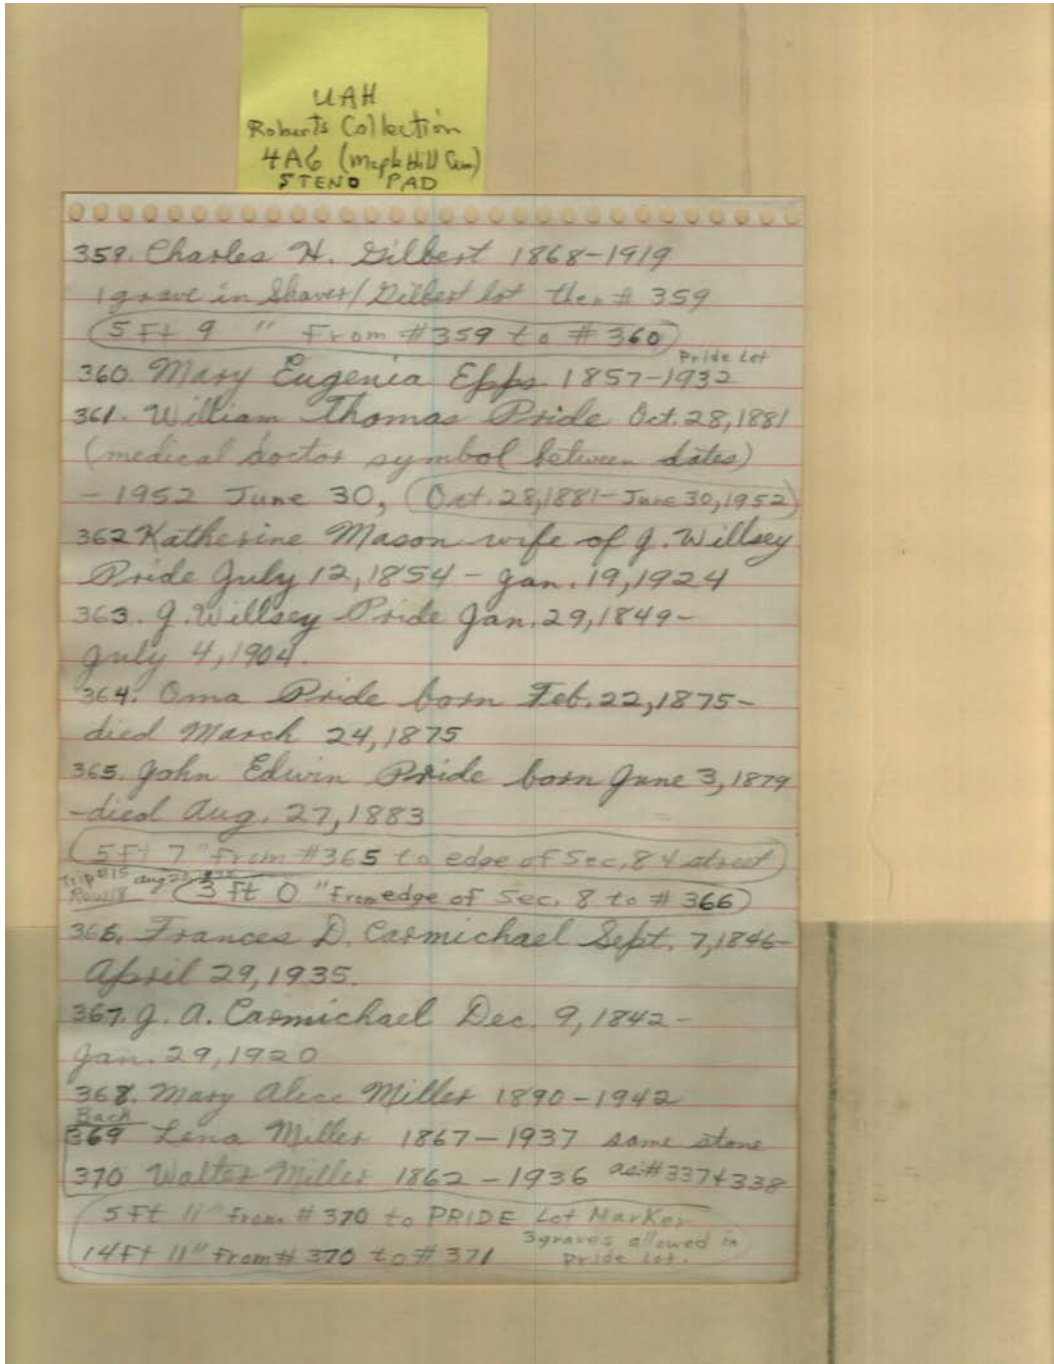 UAH
Roberts Collection
4A6 (Maple Hill Cem)
STENO PAD
359. Charles H. Gilbert 1868-1919
1 grave in Shaver/Gilbert lot then # 359
5 Ft 9 " From #359 to #360
Pride Lot
360. Mary Eugenia Epps 1857-1932
361. William Thomas Pride Oct. 28, 1881
(medical doctor symbol between dates)
- 1952 June 30, (Oct. 28, 1881-June 30, 1952)
362 Katherine Mason wife of J. Willsey
Pride July 12, 1854 - Jan. 19, 1924
363. J. Willsey Pride Jan. 29, 1849-
July 4, 1904.
364. Oma Pride born Feb. 22, 1875-
died March 24, 1875
365. John Edwin Pride born June 3, 1879
-died Aug. 27, 1883
5 Ft 7 " From #365 to edge of Sec. 8 & street
Trip #15 Aug 
Row 18 3 Ft 0 " From edge of Sec. 8 to # 366
366. Frances D. Carmichael Sept. 7, 1846-
April 29, 1935.
367. J. A. Carmichael Dec. 9, 1842-
Jan. 29, 1920
368. Mary Alice Miller 1890-1942
Back
369 Lena Miller 1867-1937 same stone
370 Walter Miller 1862-1936 as #337 & 338
5 Ft 11" From #370 to PRIDE Lot Marker
14 Ft 11" From # 370 to # 371
graves allowed in
Pride lot.